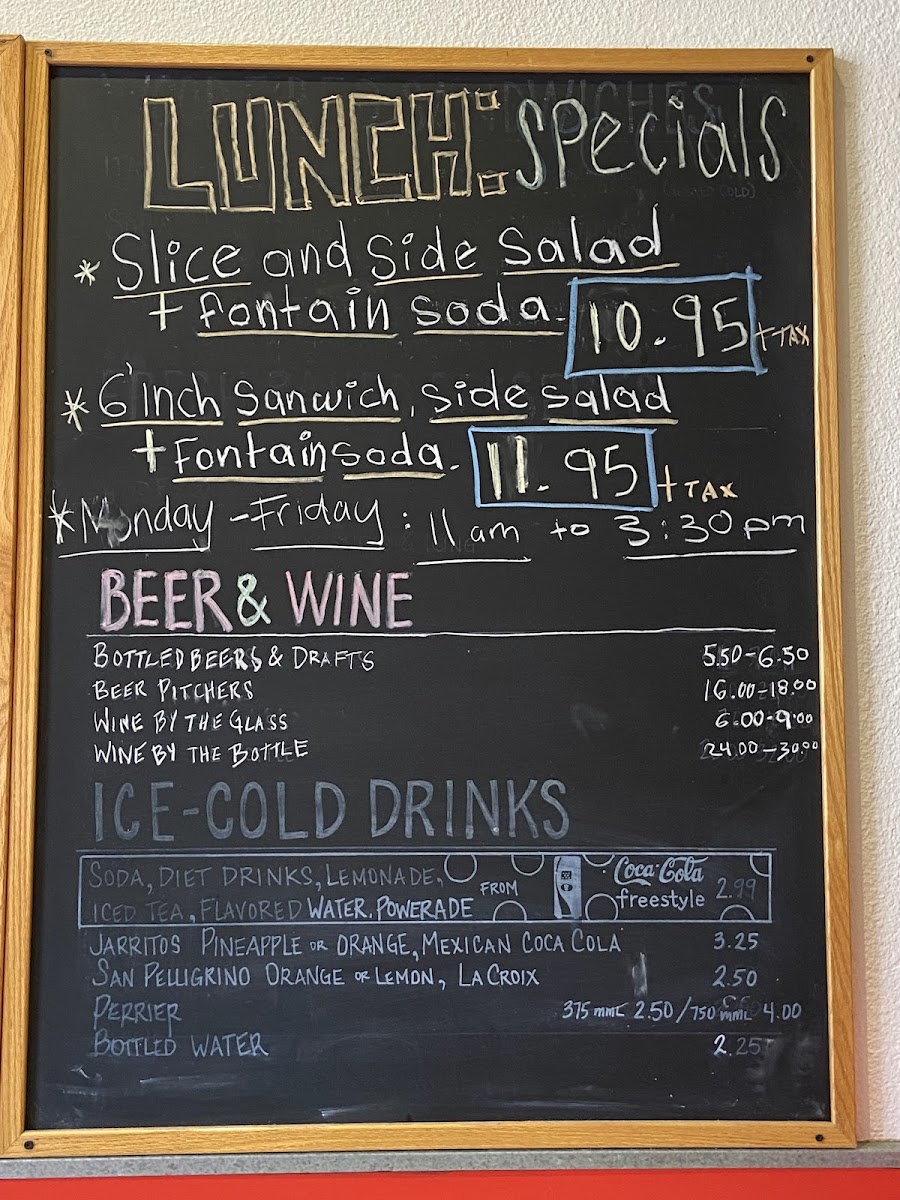 LUNCH: specials
* Slice and Side Salad
+ fontain soda. 10.95 + TAX
* 6'inch Sanwich, side salad
+ Fontain soda. 11.95 + TAX
* Monday - Friday : 11 am to 3:30 pm
BEER & WINE
BOTTLED BEERS & DRAFTS 5.50-6.50
BEER PITCHERS 16.00-18.00
WINE BY THE GLASS 6.00-9.00
WINE BY THE BOTTLE 24.00-30.00
ICE-COLD DRINKS
SODA, DIET DRINKS, LEMONADE,
ICED TEA, FLAVORED WATER. POWERADE FROM Coca-Cola freestyle 2.99
JARRITOS PINEAPPLE OR ORANGE, MEXICAN COCA COLA 3.25
SAN PELLIGRINO ORANGE OR LEMON, LA CROIX 2.50
PERRIER 375 mmL 2.50 / 750 mmL 4.00
BOTTLED WATER 2.25